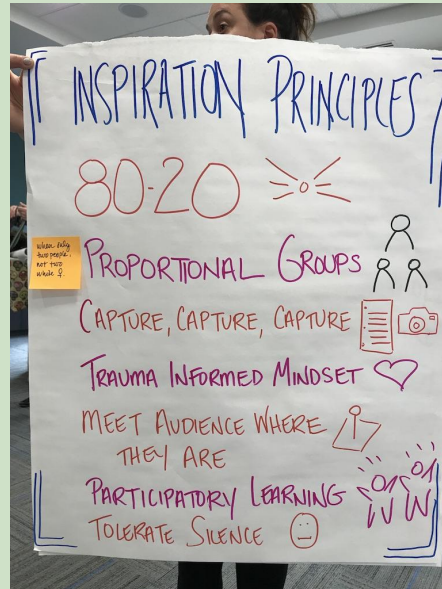 INSPIRATION PRINCIPLES
80-20
when only
two people,
not two
white ♀
PROPORTIONAL GROUPS
CAPTURE, CAPTURE, CAPTURE
TRAUMA INFORMED MINDSET
MEET AUDIENCE WHERE
THEY ARE
PARTICIPATORY LEARNING
TOLERATE SILENCE